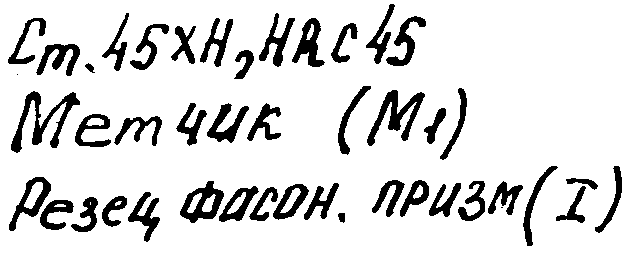 Ст. 45ХН, HRC 45
Метчик (М1)
Резец фасон. призм (I)